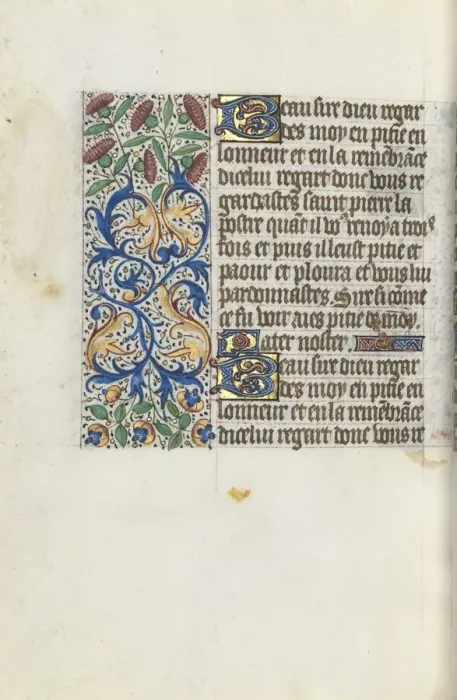 Beau sire dieu regar
des moy en pitie en
lonneur et en la reme̅bra̅ce
dicelui regart donc vous re
gardastes saint pierre la
postre qua̅t il vo⁹ renoya trois
fois et puis il eust pitie et
paour et ploura et vous lui
pardonnastes. Sire si co̅me
ce fu voir aies pitie de moy
Pater noster.
Beau sire dieu regar
des moy en pitie en
lonneur et en la reme̅bra̅ce
dicelui regart donc vous re